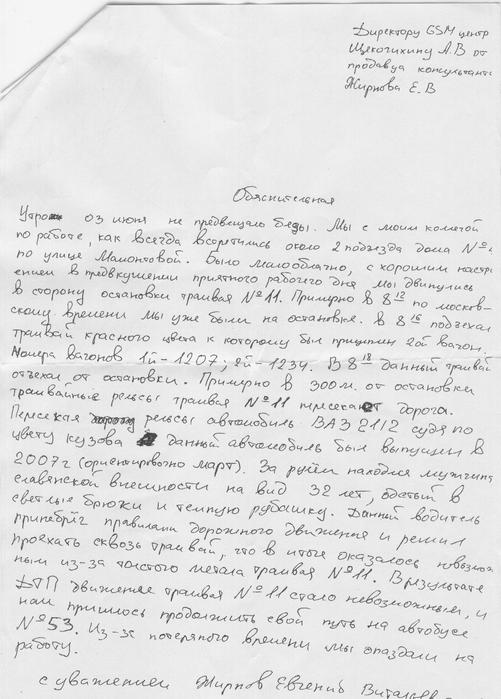 Директору GSM центр
Щекочихину А.В от
продавца консультанта
Жирнова Е.В
Обяснительная
Утром 03 июня не предвещало беды. Мы с моим колегой
по работе, как всегда встретились около 2 подъезда дома №
по улице Мамонтовой. Было малооблачно, с хорошим настр
ением в предвкушении приятного рабочего дня мы двинулись
в сторону остановки трамвая №11. Примерно в 8 12 по москов-
скому времени мы уже были на остановке. В 8 16 подъехал
трамвай красного цвета к которому был прицеплен 2ой вагон.
Номера вагонов 1й-1207; 2й-1234. В 8 18 данный трамвай
отъехал от остановки. Примерно в 300м. от остановки
трамвайные рельсы трамвая №11 пересекает дорога.
Пересекая рельсы автомобиль ВАЗ 2112 судя по
цвету кузова данный автомобиль был выпущен в
2007г (ориентировочно март). За рулём находился мужчина
славянской внешности на вид 32 лет, одетый в
светлые брюки и темную рубашку. Данный водитель
принебрёг правилами дорожного движения и решил
проехать сквозь трамвай, что в итоге оказалось невозмож
ным из-за толстого метала трамвая №11. В результате
ДТП движение трамвая №11 стало невозможным, и
нам пришлось продолжить свой путь на автобусе
№53. Из-за потеряного времени мы опаздали на
работу.
с уважением Жирнов Евгений